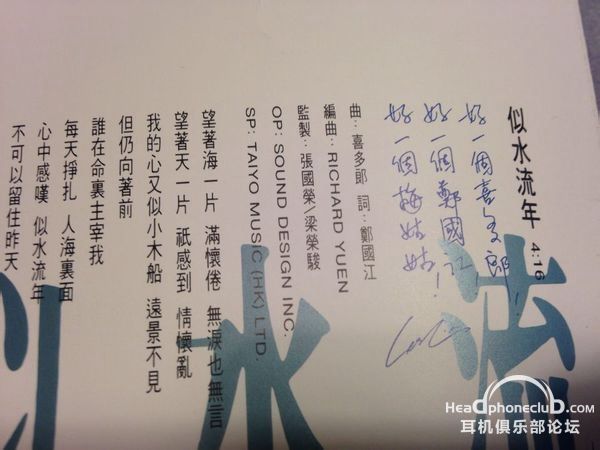 似水流年 4:16
好一個喜多郎!
好一個鄭國江!
好一個梅姑姑!
曲: 喜多郎 詞: 鄭國江
編曲: RICHARD YUEN
監製: 張國榮/梁榮駿
OP: SOUND DESIGN INC.
SP: TAIYO MUSIC (HK) LTD.
望著海一片 滿懷倦 無淚也無言
望著天一片 祇感到 情懷亂
我的心又似小木船 遠景不見
但仍向著前
誰在命裏主宰我
每天掙扎 人海裏面
心中感嘆 似水流年
不可以留住昨天
似水流
HeadphoneclubD.com
耳机俱乐部论坛